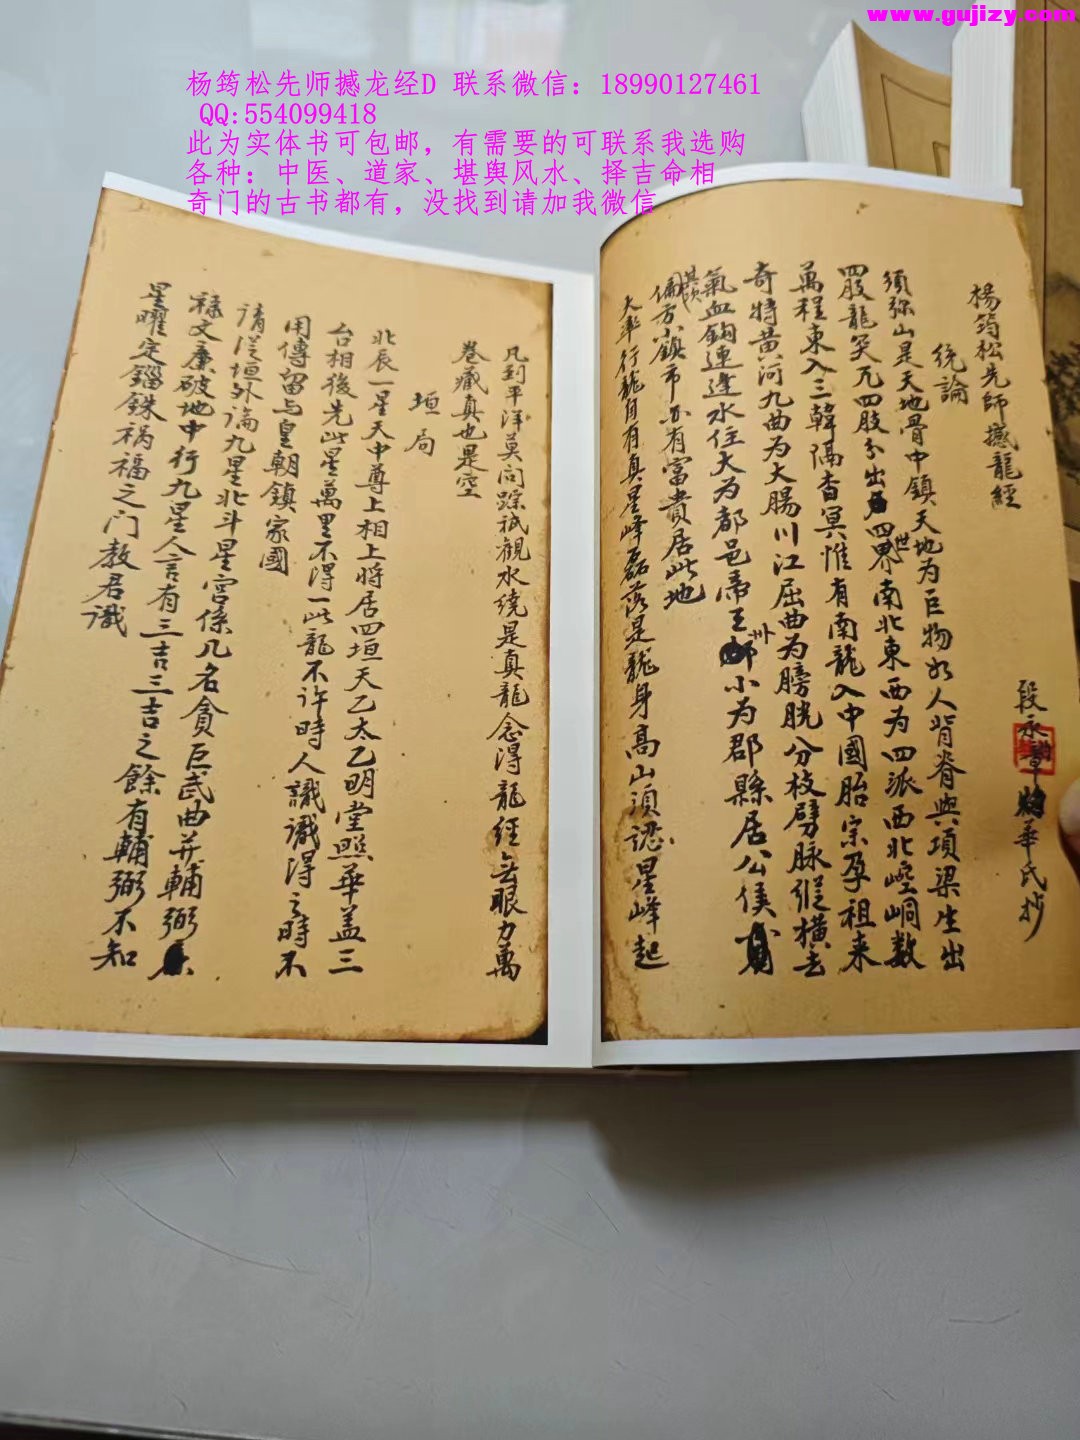 www.gujizy.com
杨筠松先师撼龙经D 联系微信：18990127461
QQ:554099418
此为实体书可包邮，有需要的可联系我选购
各种：中医、道家、堪舆风水、择吉命相
奇门的古书都有，没找到请加我微信
楊筠松先師撼龍經
段承華氏抄
統論
須弥山是天地骨中鎮天地为巨物如人背脊與項梁生出
四股龍突兀四肢分出四世界南北東西为四派西北崆峒数
萬程東入三韓隔杳冥惟有南龍入中國胎宗孕祖来
奇特黄河九曲为大腸川江屈曲为膀胱分枝劈脉縱横去
氣血鈎連逢水住大为都邑帝王州小为郡縣居公侯
其次偏方小鎮市亦有富貴居此地
大率行龍自有真星峰磊落是龍身高山須認星峰起
凡到平洋莫问踪祇觀水绕是真龍念得龍經無眼力萬
卷藏真也是空
垣局
北辰一星天中尊上相上將居四垣天乙太乙明堂照華盖三
台相後先此星萬里不得一此龍不许時人識識得之時不
用傳留与皇朝鎮家國
請從垣外論九星北斗星宮係几名貪巨武曲并輔弼
祿文廉破地中行九星人言有三吉三吉之餘有輔弼不知
星曜定錙銖祸福之门教君識